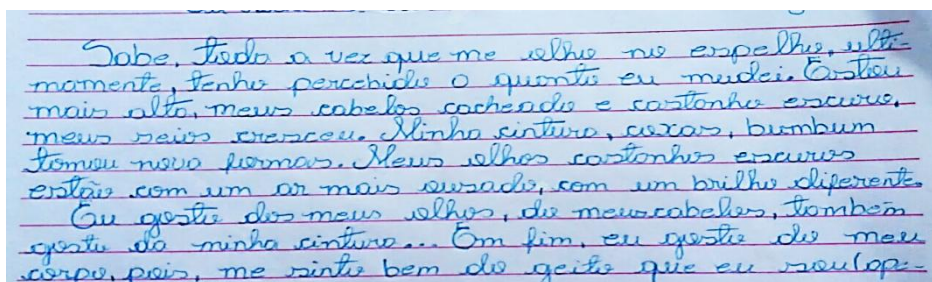 Sabe, toda a vez que me olho no espelho, ulti-
mamente, tenho percebido o quanto eu mudei. Estou
mais alta, meus cabelos cacheado e castanho escuro,
meus seios cresceu. Minha cintura, coxas, bumbum
tomou nova formas. Meus olhos castanhos escuros
estão com um ar mais ousado, com um brilho diferente.
Eu gosto dos meus olhos, do meus cabelos, também
gosto da minha cintura... Em fim, eu gosto do meu
corpo, pois, me sinto bem do geito que eu sou(ape-